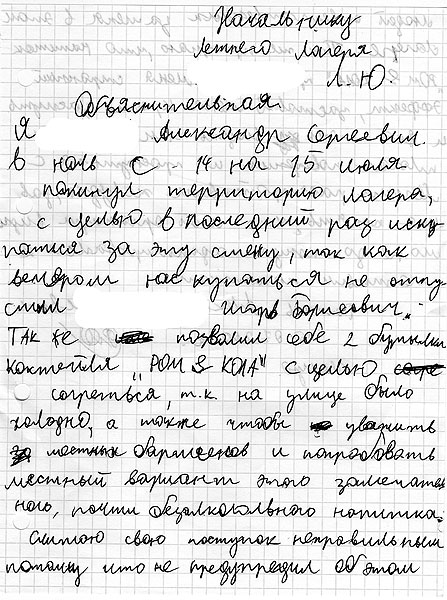 Начальнику
летнего лагеря
Л.Ю.
Объяснительная.
Я Александр Сергеевич.
в ночь с 14 на 15 июля
покинул территорию лагеря,
с целью в последний раз иску
паться за эту смену, так как
вечером нас купаться не отпу
стил Игорь Борисович.
Так же позволил себе 2 бутылки
коктейля "РОМ & КОЛА" с целью
согреться, т.к. на улице было
холодно, а также чтобы уважить
местных барменов и попробовать
местный вариант этого замечатель
ного, почти безалкогольного напитка.
Считаю свой поступок неправильным
потому что не предупредил об этом